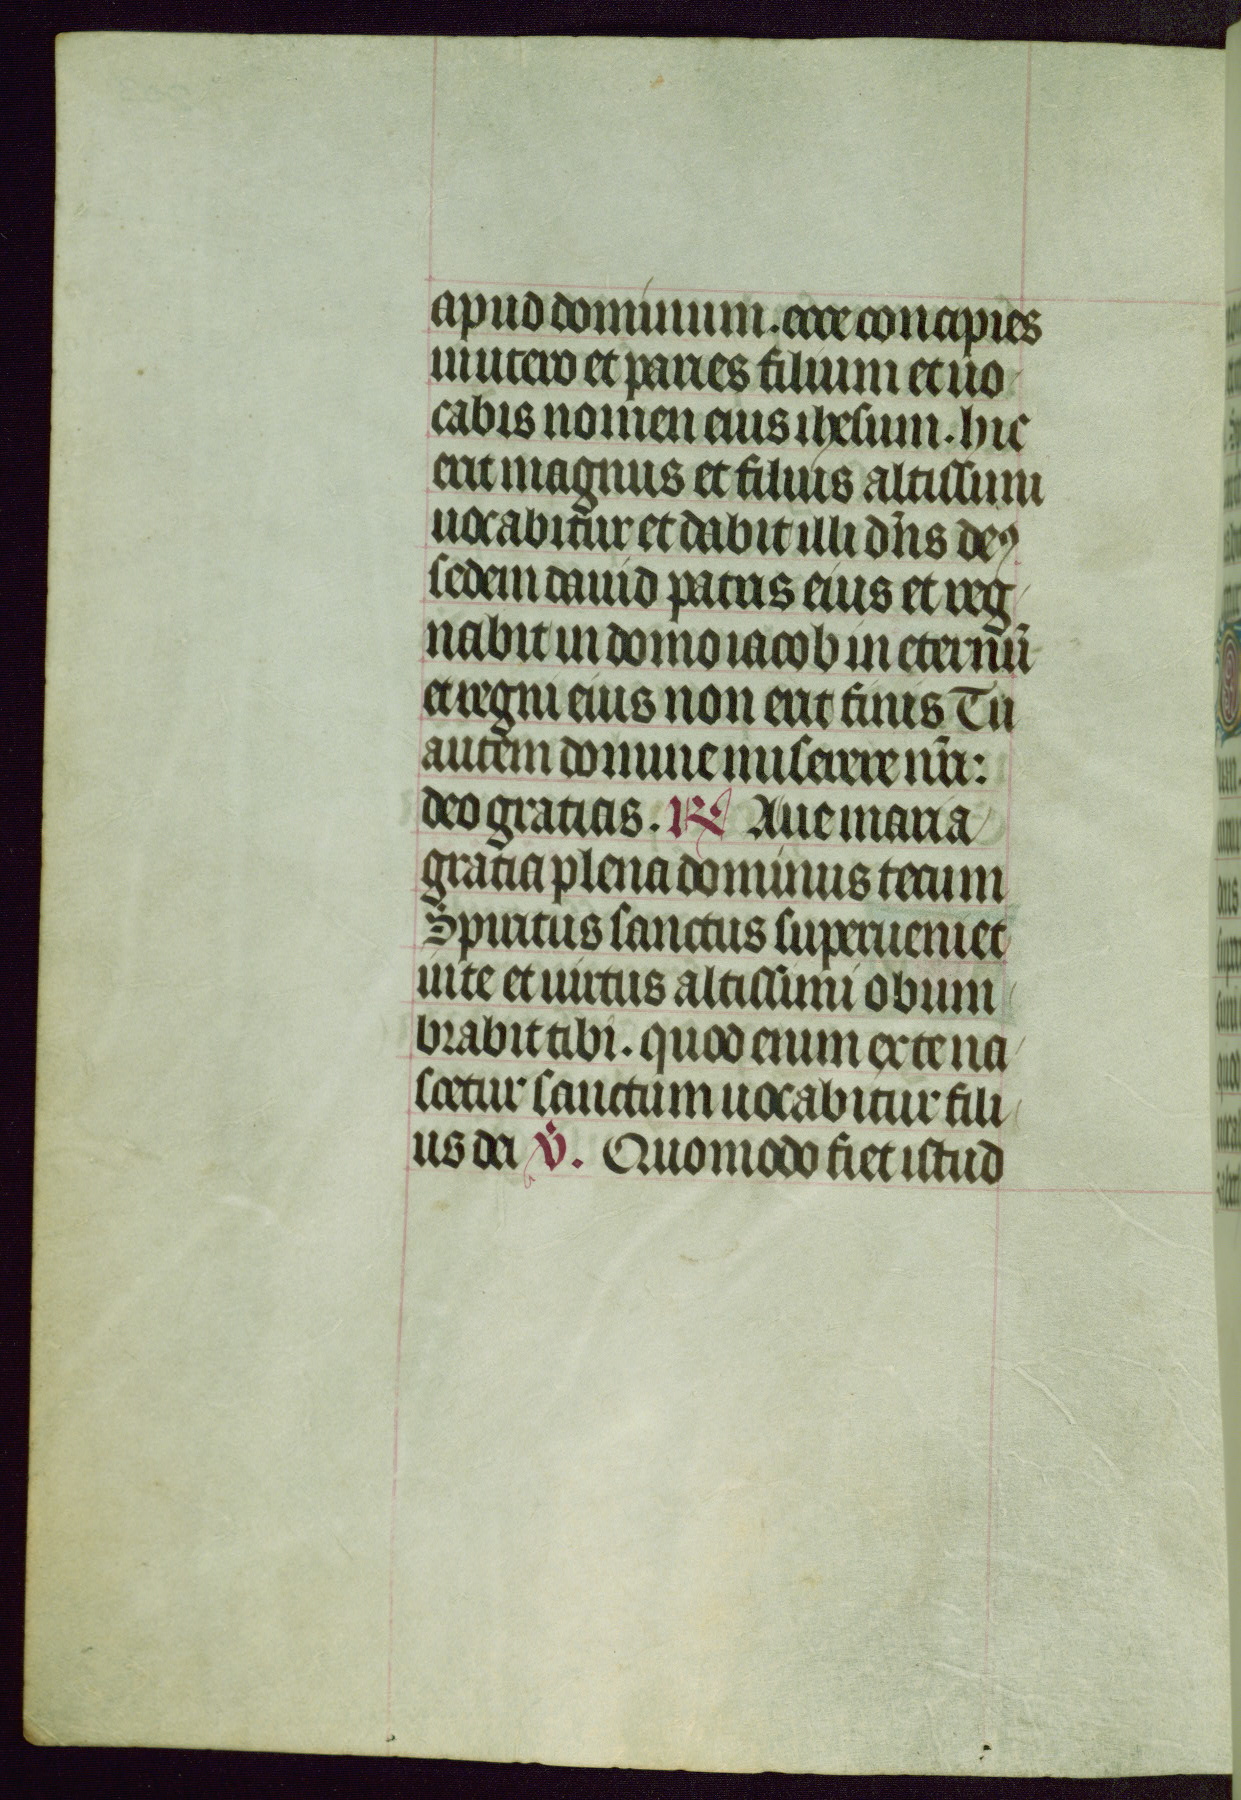 apud dominum. ecce concipies
in utero et paries filium et uo
cabis nomen eius ihesum. hic
erit magnus et filius altissimi
uocabitur et dabit illi dn̄s deꝰ
sedem dauid patris eius et reg
nabit in domo iacob in eternū
et regni eius non erit finis Tu
autem domine miserere nr̄i:
deo gratias. ℟ Aue maria
gratia plena dominus tecum
Spiritus sanctus superueniet
in te et uirtus altissimi obum
brabit tibi. quod enim ex te na
scetur sanctum uocabitur fili
us dei ℣. Quomodo fiet istud